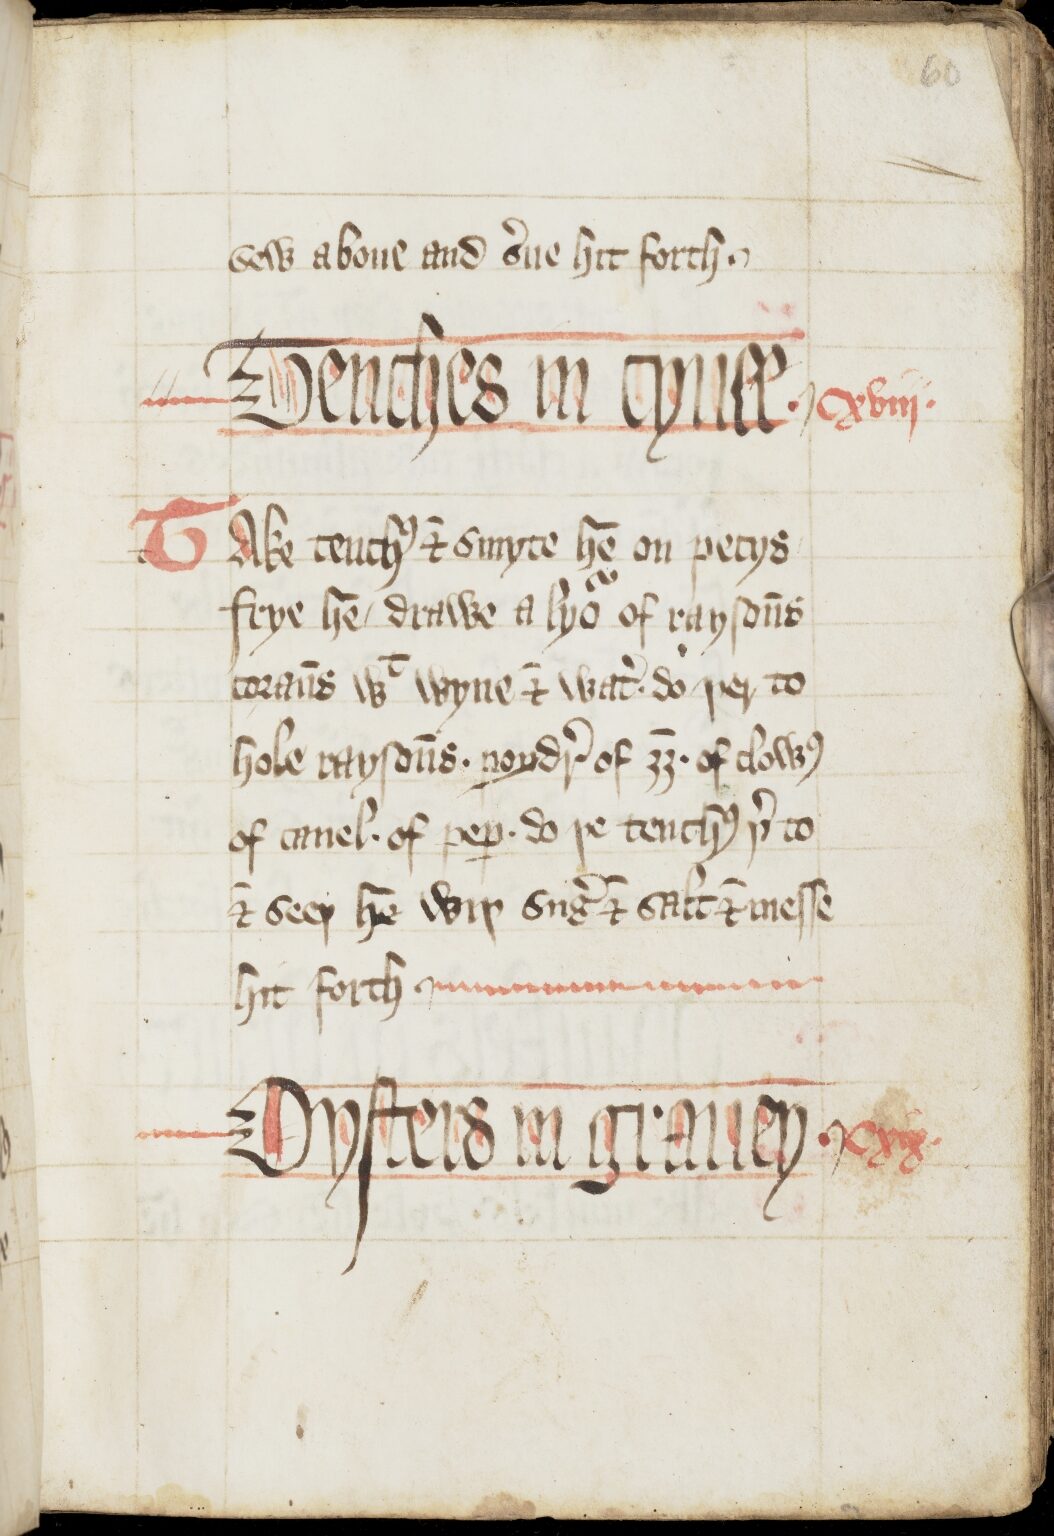 60
sew aboue and s͛ue hit forth.
Tenches in cynee. cxviii.
Take tench͛ & smyte hē on pecys
frye hē / drawe a lyoᷓ of raysoūs
coraūs wͭ wyne & wat͛. do þer to
hole raysoūs. poudr͛ of ȝȝ̄. of clowꝰ
of canel. of pep̲. do þe tenchꝰ þ͛ to
& seeþ hē wiþ sug͛ & salt & messe
hit forth
Oysters in grauey. cxix.